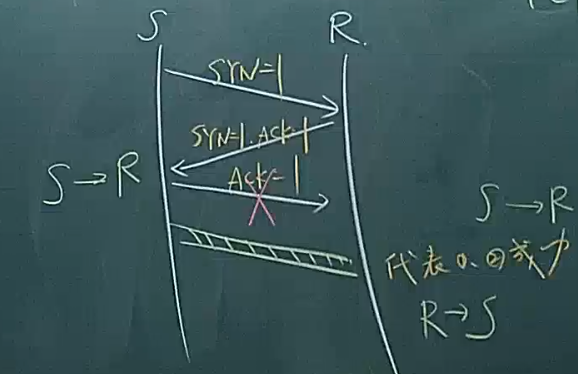 S R.
SYN=1
SYN=1.ACK=1
S→R
ACK=1
S→R
代表①.②成功
R→S